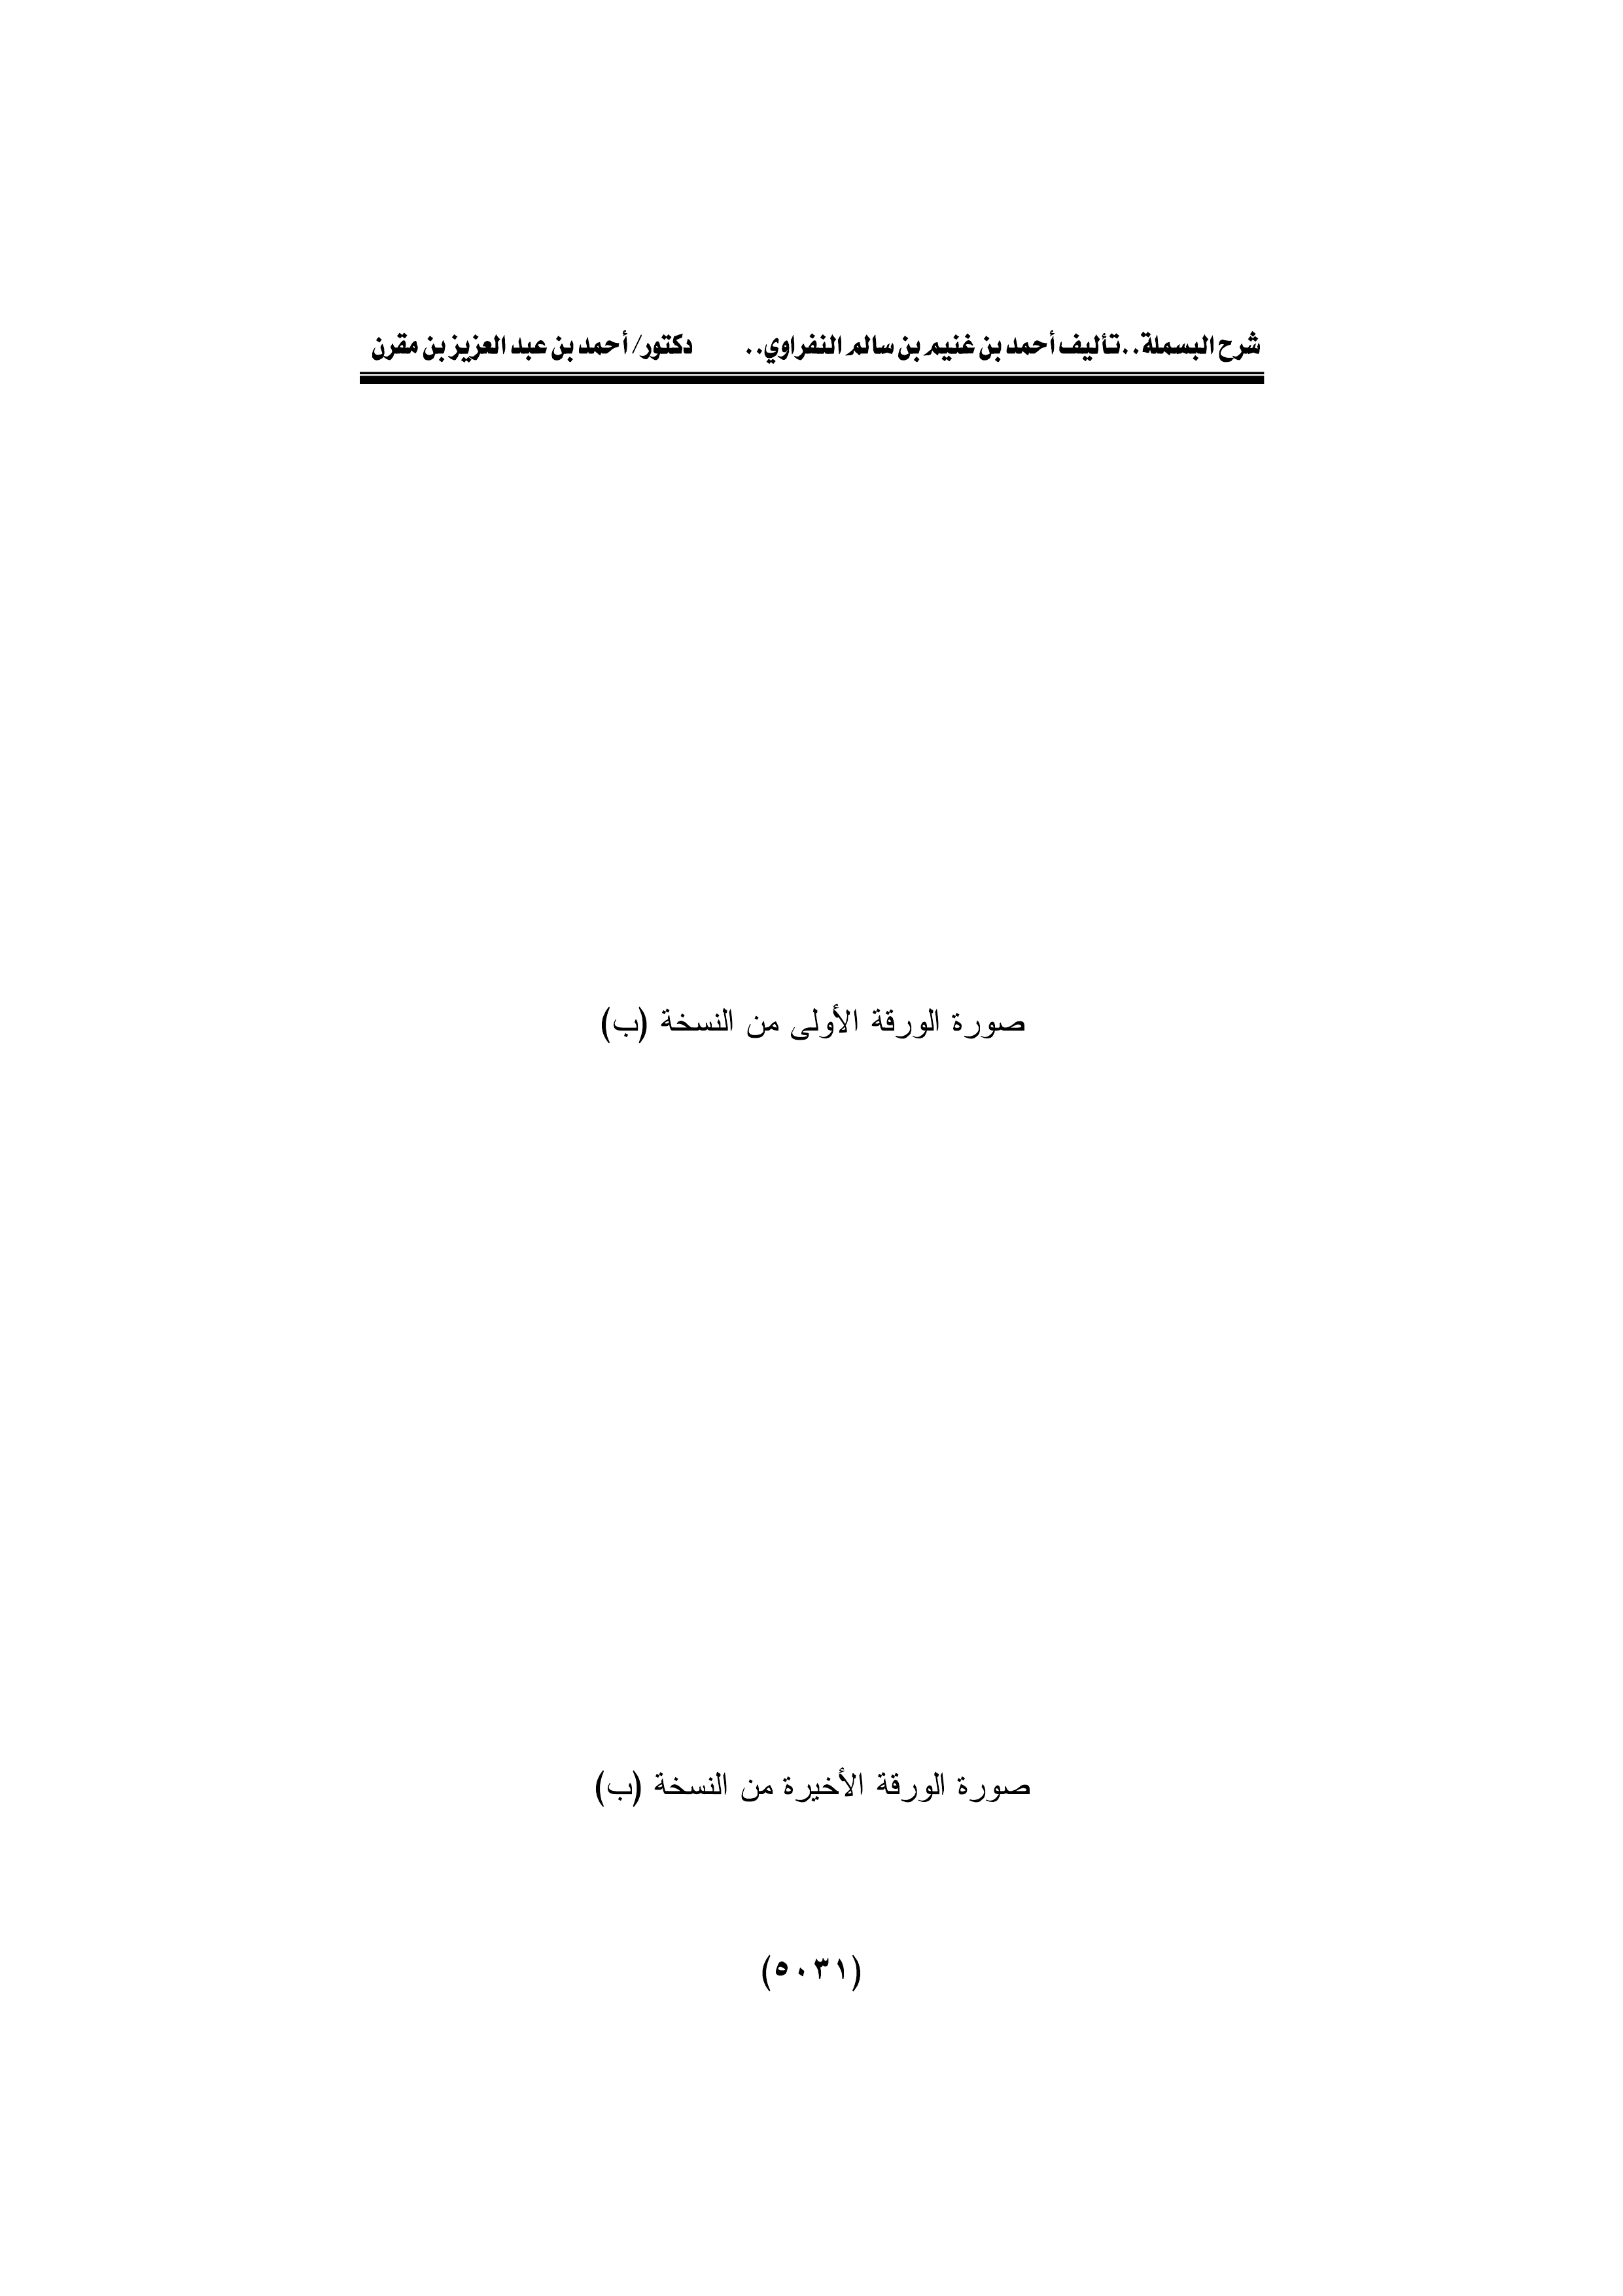 شرح البسملة..تأليف أحمد بن غنيم بن سالم النفراوي.. دكتور/ أحمد بن عبد العزيز بن مقرن
صورة الورقة الأولى من النسخة (ب)
صورة الورقة الأخيرة من النسخة (ب)
(٥٠٣١)